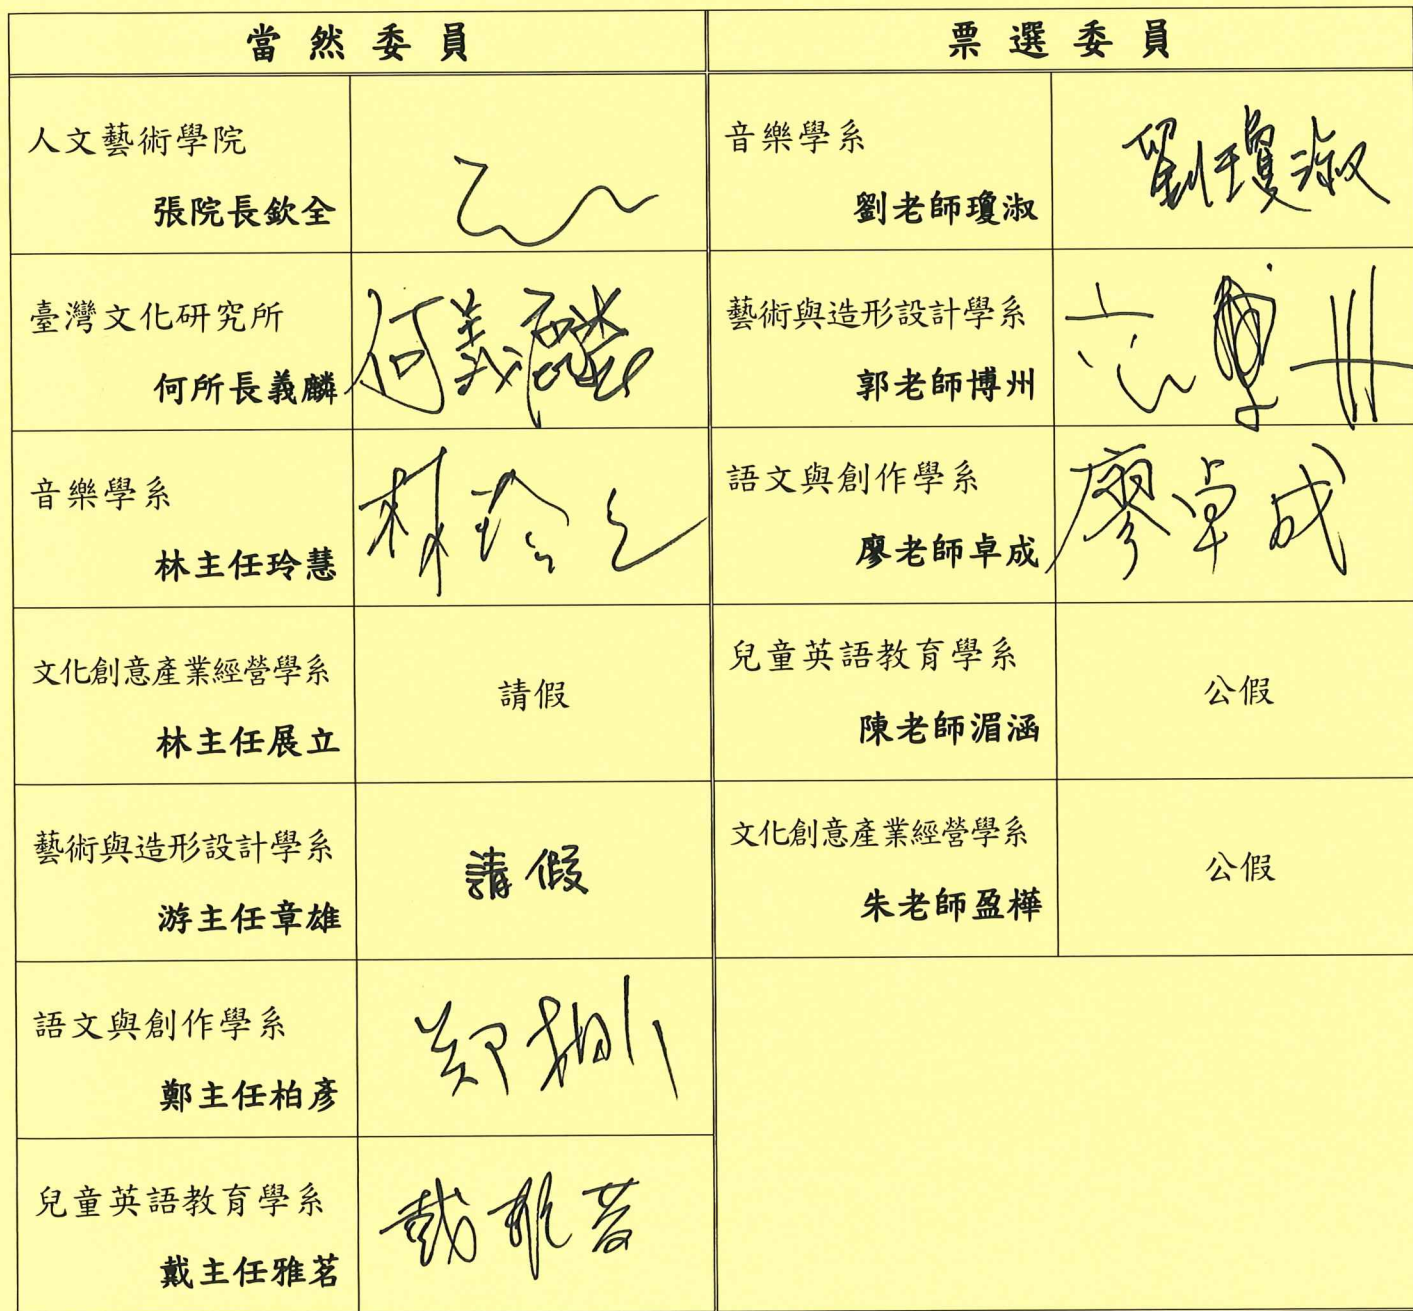 當然委員
票選委員
人文藝術學院
張院長欽全
音樂學系
劉老師瓊淑
劉瓊淑
臺灣文化研究所
何所長義麟
何義麟
藝術與造形設計學系
郭老師博州
音樂學系
林主任玲慧
語文與創作學系
廖老師卓成
廖卓成
文化創意產業經營學系
林主任展立
請假
兒童英語教育學系
陳老師湄涵
公假
藝術與造形設計學系
游主任章雄
請假
文化創意產業經營學系
朱老師盈樺
公假
語文與創作學系
鄭主任柏彥
兒童英語教育學系
戴主任雅茗
戴雅茗